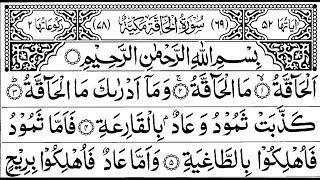 اٰيَاتُهَا ٥٢ (٦٩) سُوْرَةُ الْحَآقَّةِ مَكِّيَّةٌ (٧٨) رُكُوْعَاتُهَا ٢
بِسْمِ اللّٰهِ الرَّحْمٰنِ الرَّحِيْمِ
اَلْحَآقَّةُ ۙ۱ مَا الْحَآقَّةُ ۚ۲ وَمَاۤ اَدْرٰىكَ مَا الْحَآقَّةُ ؕ۳
كَذَّبَتْ ثَمُوْدُ وَ عَادٌۢ بِالْقَارِعَةِ ۴ فَاَمَّا ثَمُوْدُ
فَاُهْلِكُوْا بِالطَّاغِيَةِ ۵ وَاَمَّا عَادٌ فَاُهْلِكُوْا بِرِيْحٍ